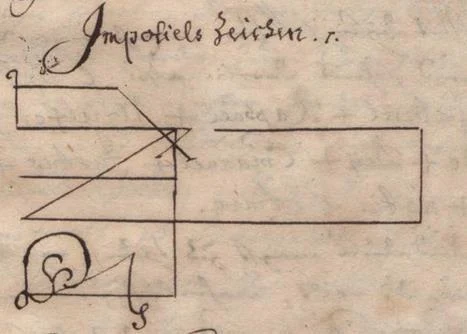 Impoliels Zeichen. r.